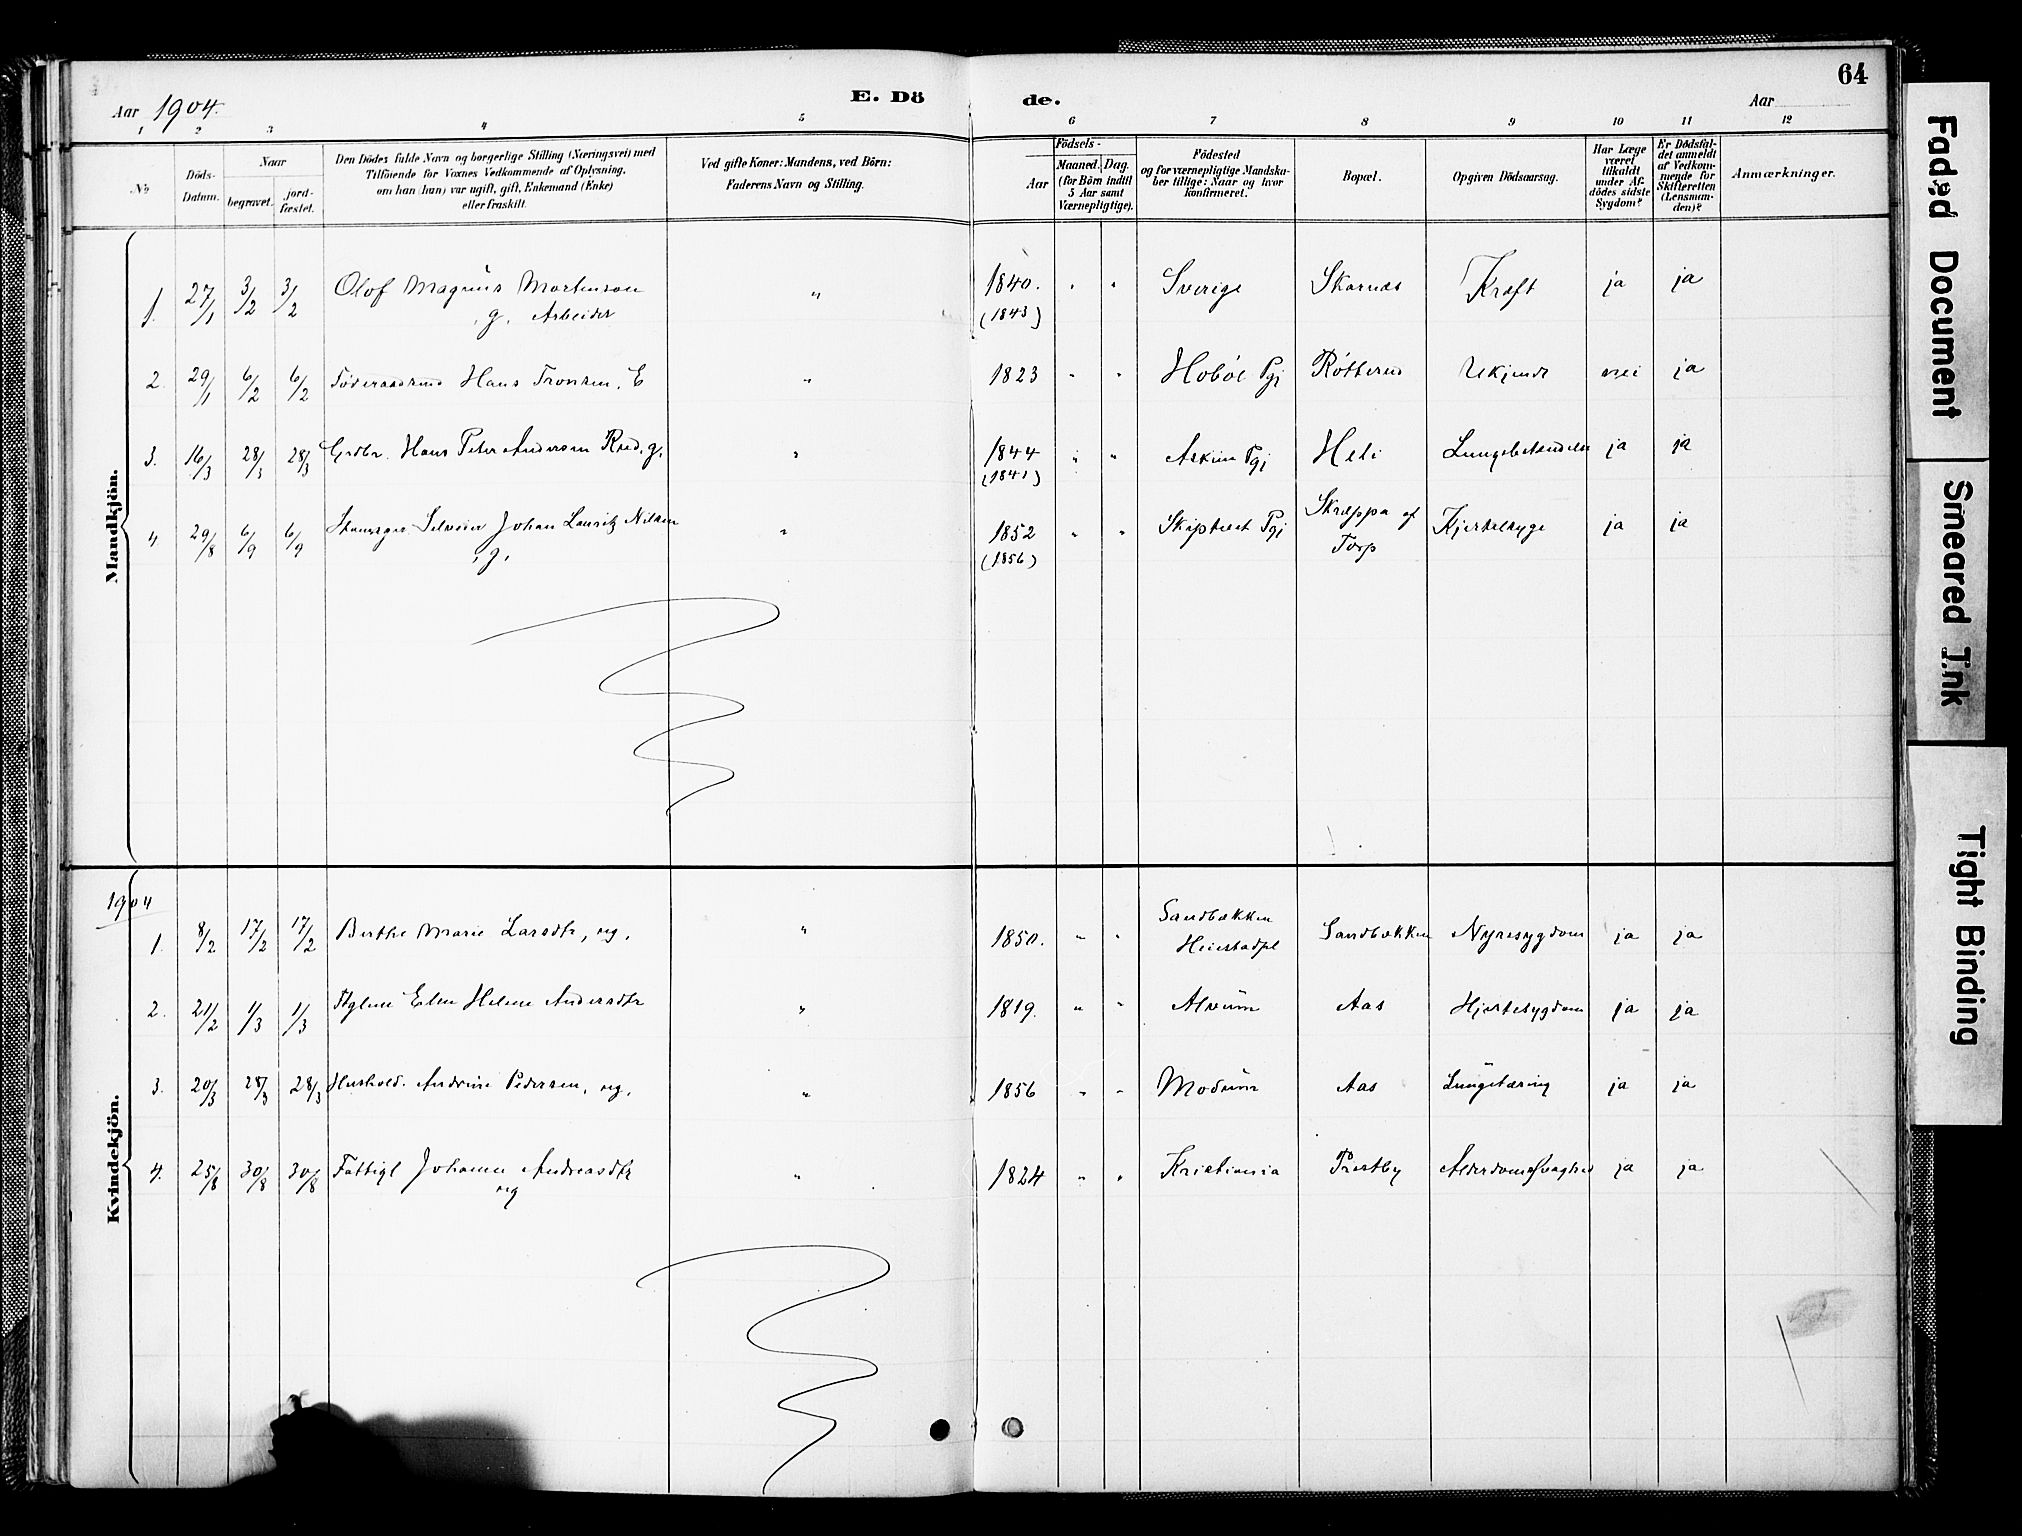 Aar 1904.
E. Dö de.
Aar
64
1 2 3 4 5 6 7 8 9 10 11 12
No
Döds-Datum.
Naar
begravet.
jord-fæstet.
Den Dödes fulde Navn og borgerlige Stilling (Næringsvei) med
Tilföiende for Voxnes Vedkommende af Oplysning,
om han (hun) var ugift, gift, Enkemand (Enke)
eller fraskilt.
Ved gifte Koner: Mandens, ved Börn:
Faderens Navn og Stilling.
Födsels-
Aar
Maaned. Dag.
(for Börn indtil
5 Aar samt
Værnepligtige).
Födested
og for værnepligtige Mandska-
ber tillige: Naar og hvor
konfirmeret.
Bopæl.
Opgiven Dödsaarsag.
Har Læge
været
tilkaldt
under Af-
dödes sidste
Sygdom?
Er Dödsfal-
det anmeldt
af Vedkom-
mende for
Skifteretten
(Lensman-
den)?
Anmærkninger.
Mandkjön.
1. 27/1 3/2 3/2 Olof Magnus Mortensen " 1840. " " Sverige Skarnes Kræft ja ja
g. Arbeider (1843)
2. 29/1 6/2 6/2 Föderaadsmd Hans Tronsen, E " 1823 " " Hoböl Pgj Rötterud Ukjendt nei ja
3. 16/3 28/3 28/3 Grdbr. Hans Peter Andersen Rud, g. " 1844 " " Askim Pgj Heli Lungebetændelse ja ja
(1841)
4 29/8 6/9 6/9 Selveier Johan Lauritz Nilsen " 1852 " " Skiptvedt Pgj Skræppa af Kjertelsyge ja ja
g. (1856) Torp
Kvindekjön.
1904
1. 8/2 17/2 17/2 Berthe Marie Larsdtr, ug. " 1850. " " Sandbækken Sandbækken Nyresygdom ja ja
Heiestadpl
2. 21/2 1/3 1/3 Elen Helene Andersdtr " 1819. " " Alvim Aas Hjertesygdom ja ja
3. 20/3 28/3 28/3 Hushold. Andrine Pedersen, ug. " 1856 " " Modum Aas Lungetæring ja ja
4. 25/8 30/8 30/8 Fattigl Johanne Andreasdtr " 1824 " " Kristiania Prestby Alderdomssvaghed ja ja
ug
Faded Document
Smeared Ink
Tight Binding